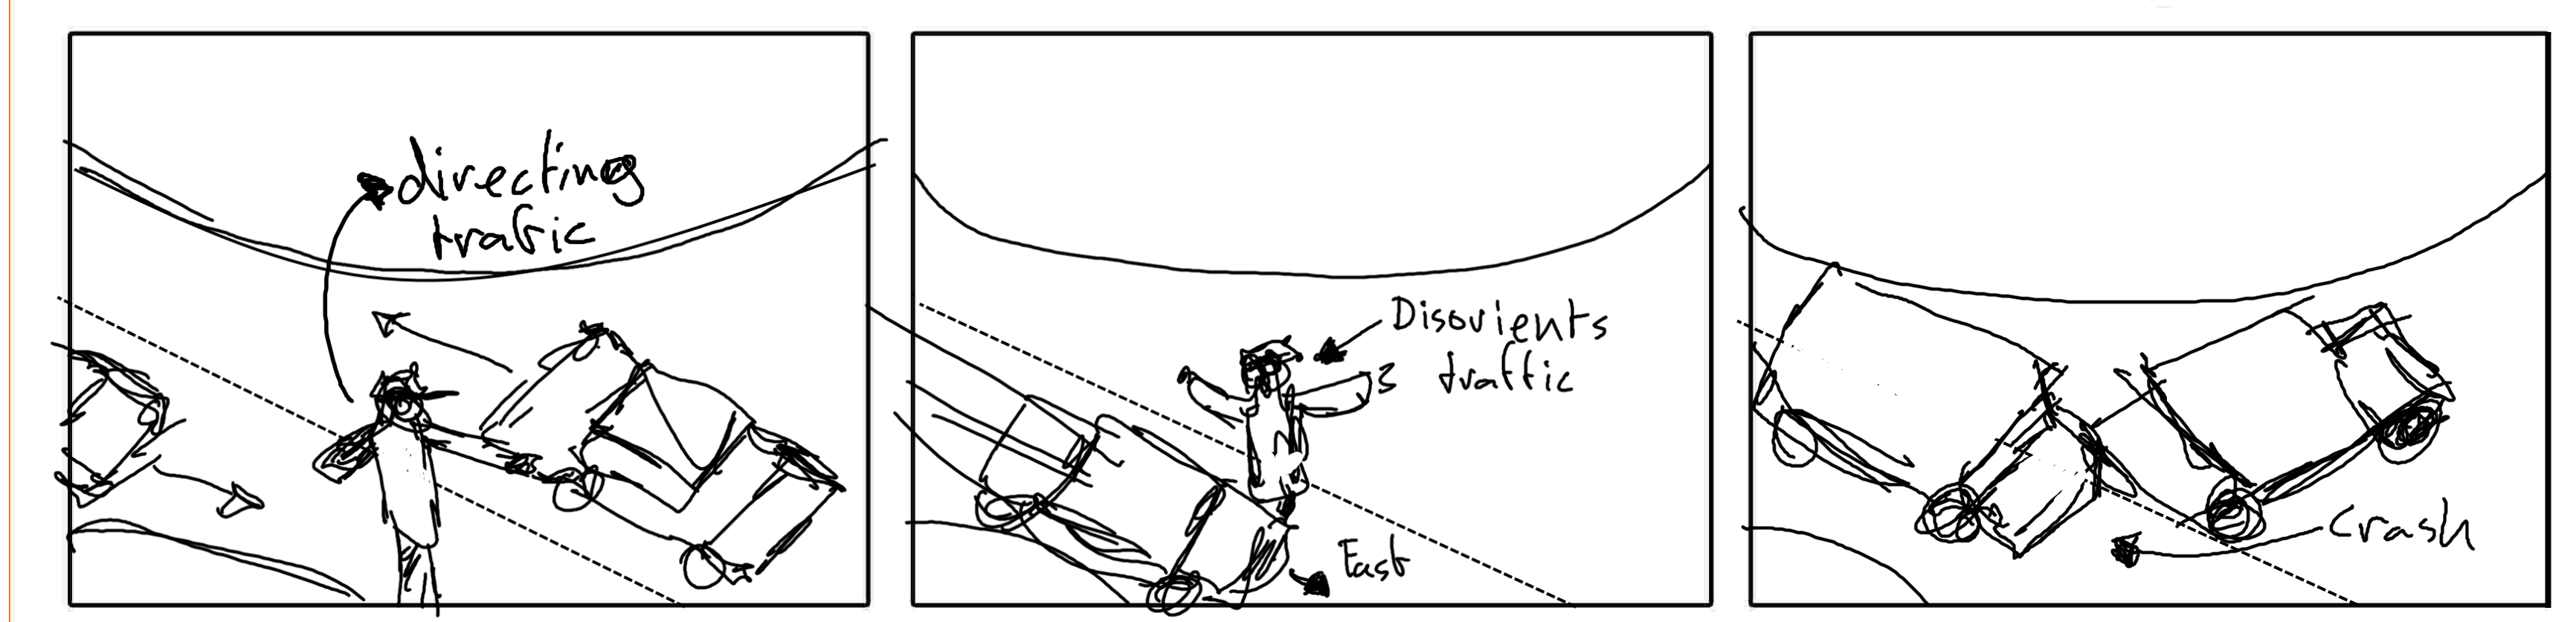 directing
trafic
Disorients
traffic
Fast
Crash